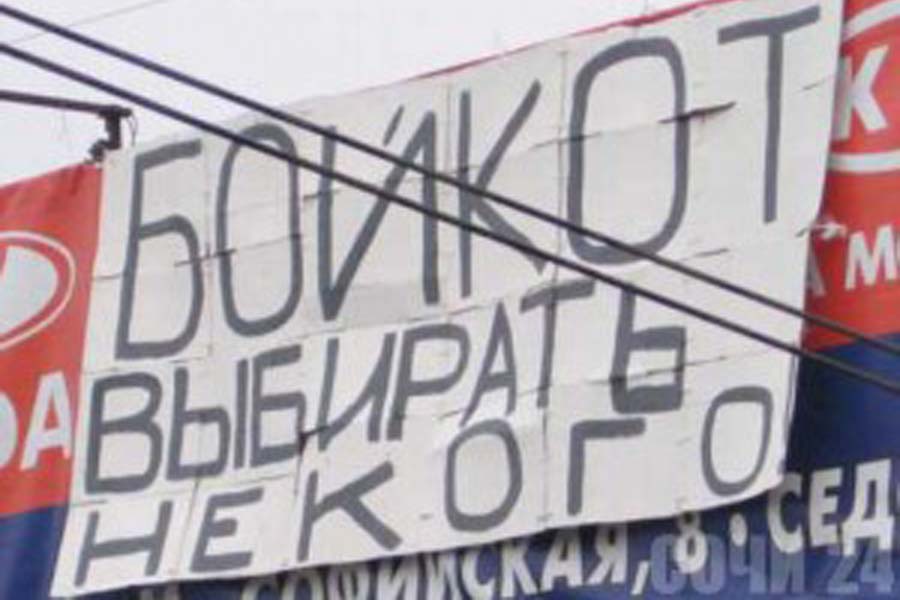 БОЙКОТ
ВЫБИРАТЬ
НЕКОГО
К
ДА
А М
СОФИЙСКАЯ, 8 · СЕД
СОЧИ 24